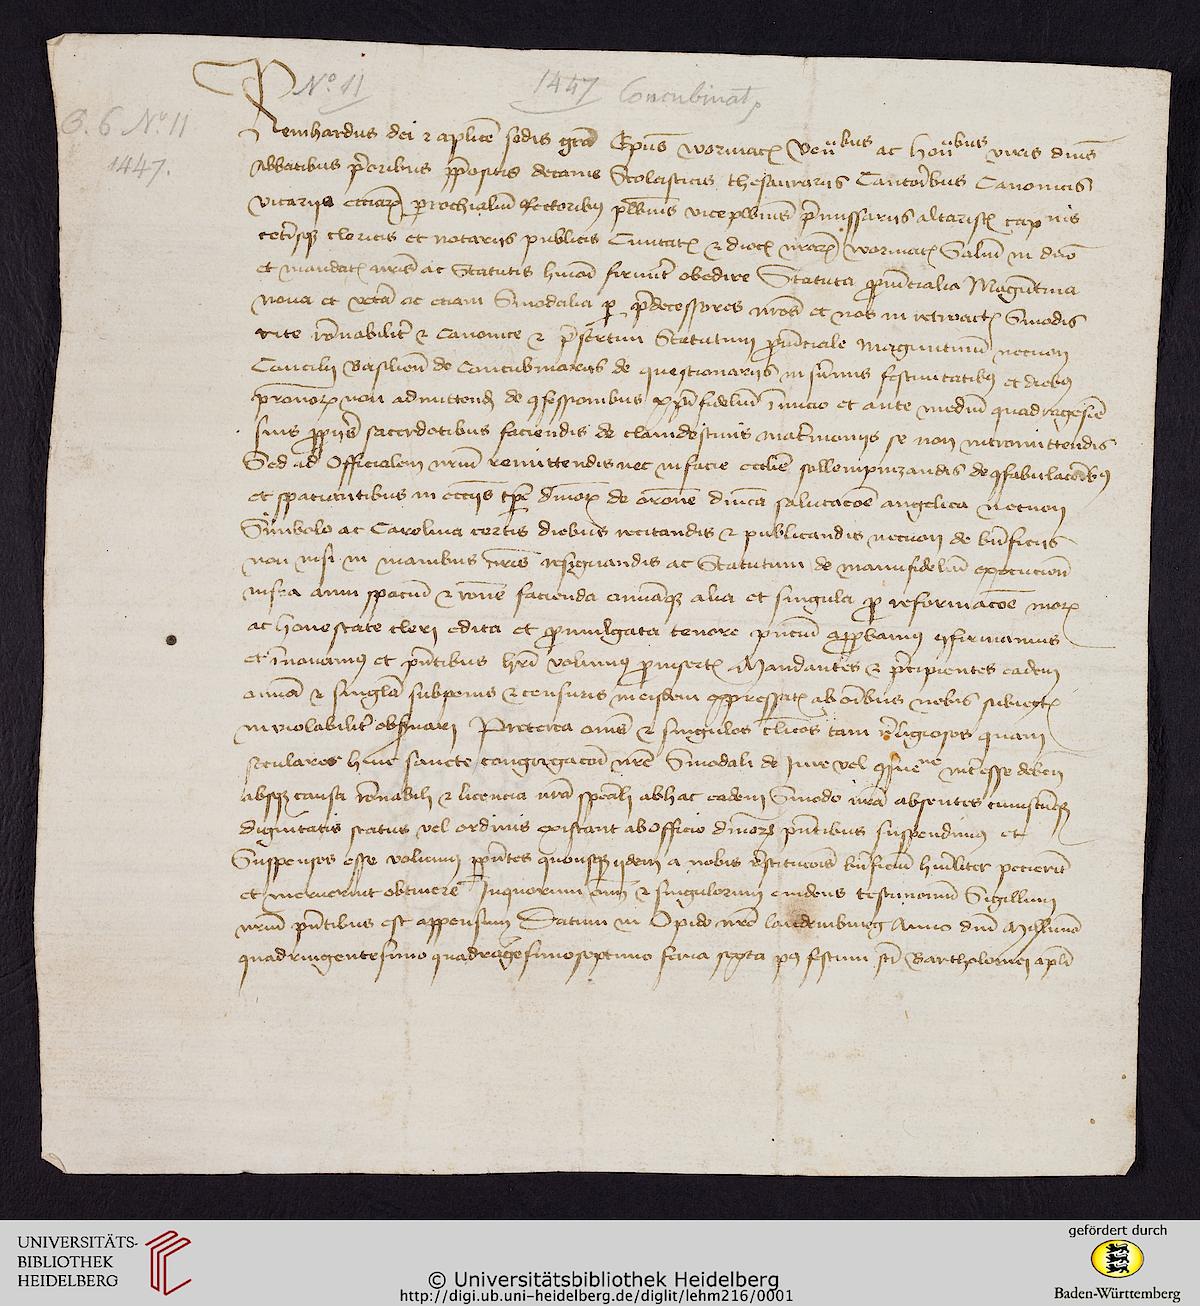 No 11
1447 Concubinat
B. 6 No 11
1447.
Reinhardus dei et aplice sedis gra Epus wormacen Venbus ac honbus viris dnis
Abbatibus prioribus ppositis decanis Scolasticis thesaurariis Cantoribus Canonicis
vicariis ecciarum parochialium Rectoribus plbanis viceplbanis primissariis altaristis cap nis
ceterisque clericis et notariis publicis Civitatis et dioc nrarum wormacen Salutem in dno
et mandatis nris ac Statutis huiusmodi firmiter obedire Statuta provincialia Maguntina
nova et vetera ac etiam Sinodalia per predecessores nros et nos in retroactis Sinodis
rite rationabiliter et canonice et presertim Statutum provinciale Maguntinum necnon
Concilii Basilien de Concubinariis de questionariis in summis festivitatibus et diebus
non admittendis de confessionibus xpifidelium initio et ante medium quadragesime
suis propriis sacerdotibus faciendis de clandestinis matrimoniis se non intromittendis
Sed ad Officialem nrum remittendis nec in facie ecclie sollempnizandis de confabulacoibus
et spaciantibus in ecciis tpe divinorum de oracione dnica salutacoe angelica necnon
Simbolo ac Carolina certis diebus recitandis et publicandis necnon de bnficiis
non nisi in manibus nris resignandis ac Statutum de manufidelium execucione
infra anni spacium et racione facienda omniaque alia et singula pro reformacoe morum
ac honestate cleri edita et promulgata tenore pncium approbamus confirmamus
et innovamus et pntibus hri volumus pro insertis Mandantes et precipientes eadem
omnia et singula sub penis et censuris in eisdem expressatis ab omnibus nobis subiectis
inviolabiliter observari Preterea omnes et singulos clicos tam religiosos quam
seculares huic sancte congregacoi nre Sinodali de iure vel consuetudine interesse deben
absque causa rationabili et licencia nra speciali ab hac eadem Sinodo nra absentes cuiuscumque
dignitatis status vel ordinis existant ab officio divinorum pntibus suspendimus et
Suspensos esse volumus pntes quousque iidem a nobis restitucois bnficium humiliter petierint
et meruerint obtinere In quorum omnium et singulorum evidens testimonium Sigillum
nrum pntibus est appensum Datum in Opido nro laudemburg Anno dni Millesimo
quadringentesimo quadragesimoseptimo feria sexta post festum sti Bartholomei apli
UNIVERSITÄTS-
BIBLIOTHEK
HEIDELBERG
© Universitätsbibliothek Heidelberg
http://digi.ub.uni-heidelberg.de/diglit/lehm216/0001
gefördert durch
Baden-Württemberg